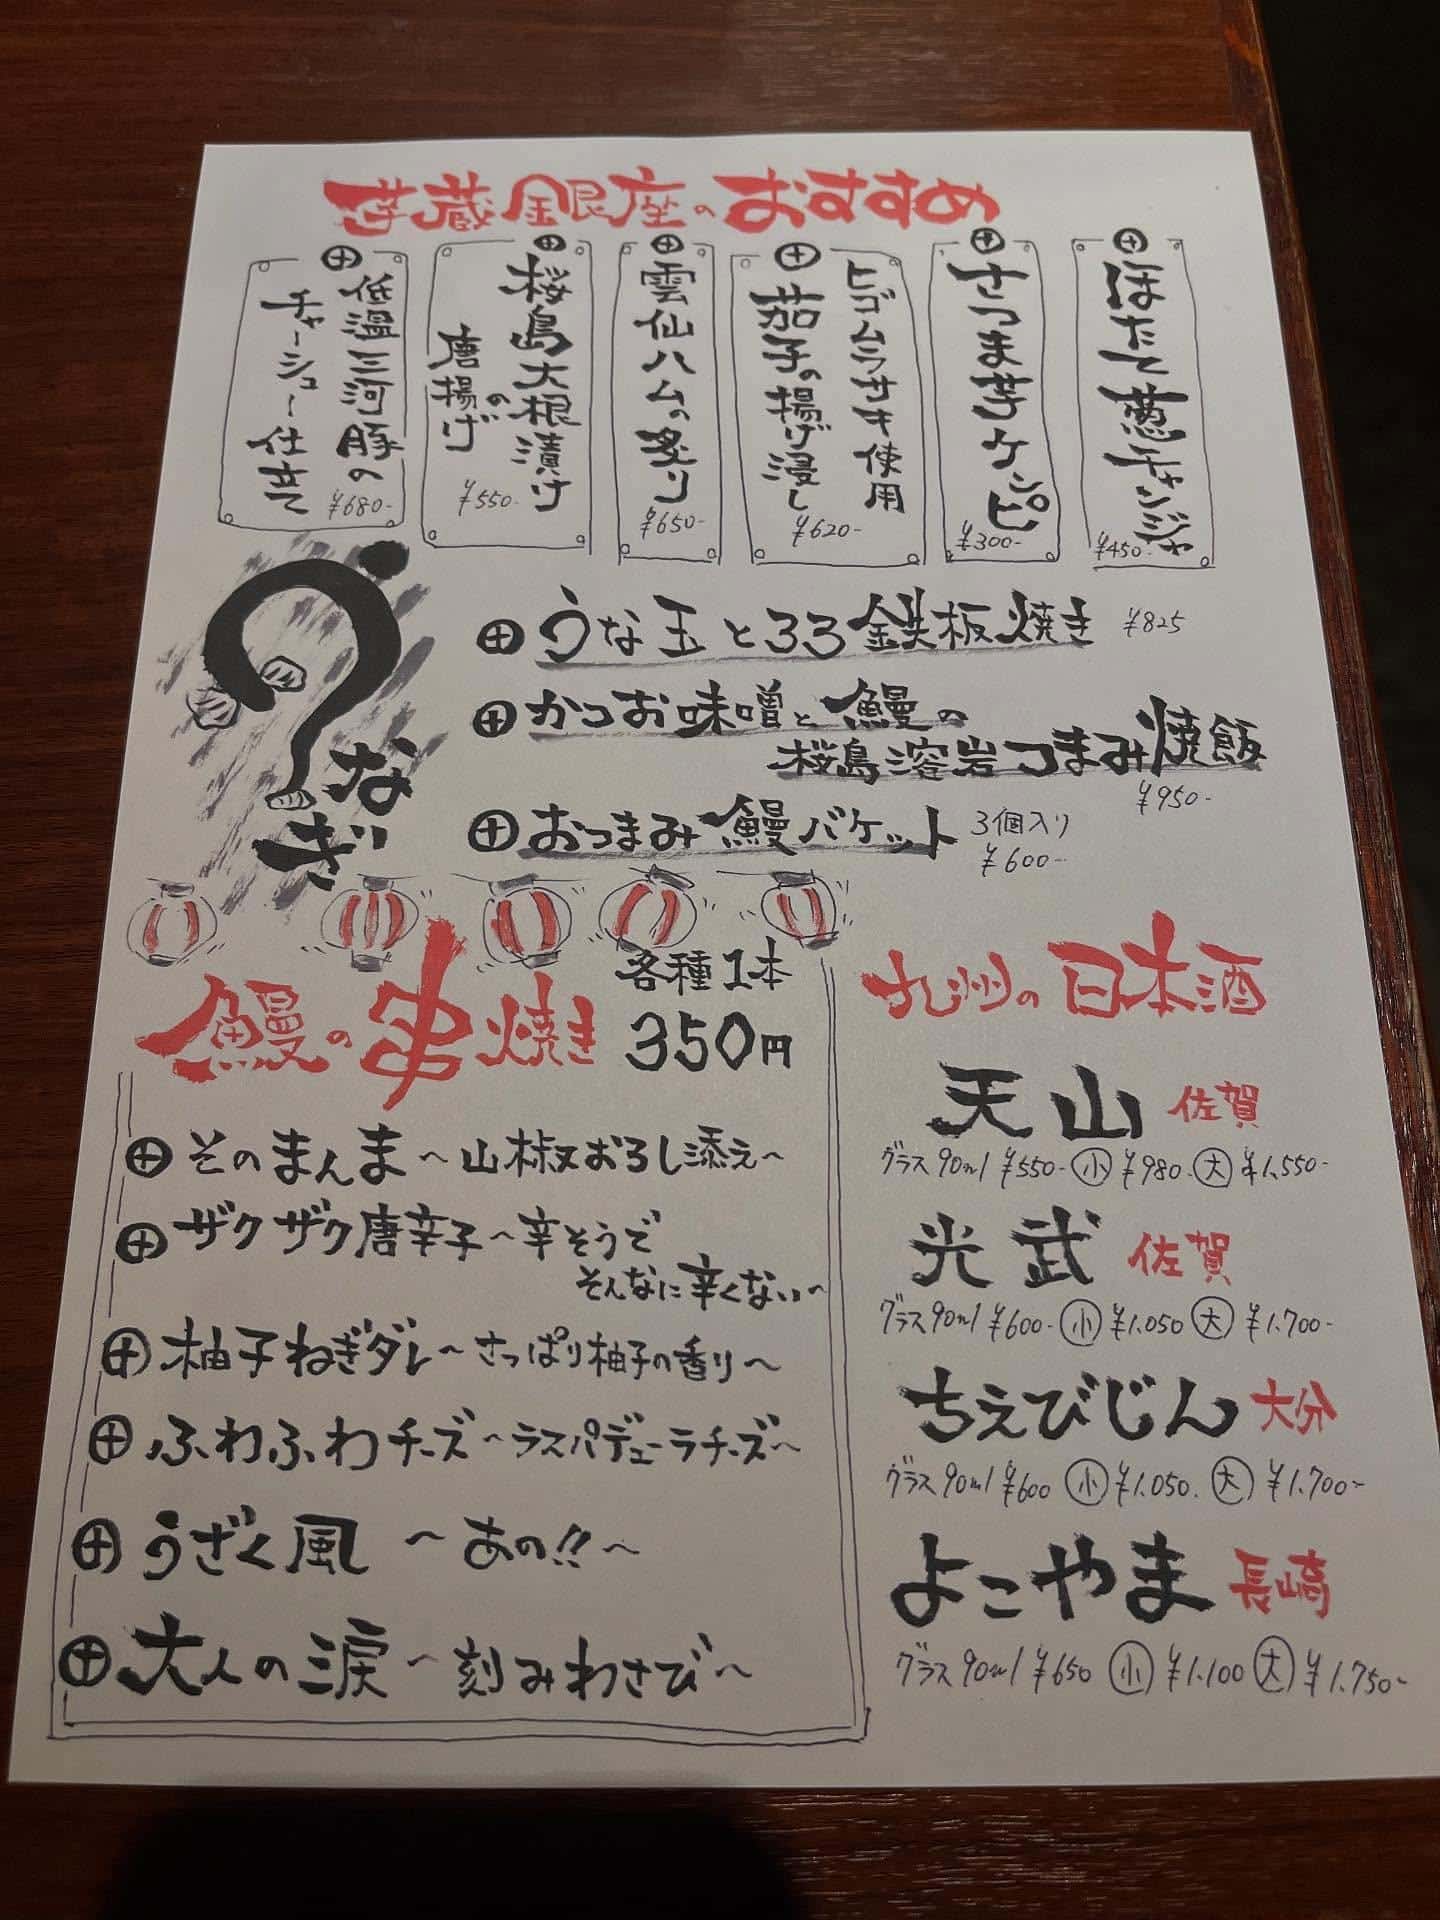 芋蔵銀座のおすすめ
ほたて葱チャンジャ
¥450-
さつま芋ケンピ
¥300-
ヒゴムラサキ使用
茄子の揚げ浸し
¥620-
雲仙ハムの炙り
¥650-
桜島大根漬けの
唐揚げ
¥550-
低温三河豚の
チャーシュー仕立て
¥680-
うなぎ
うな玉とろろ鉄板焼き ¥825
かつお味噌と鰻の
桜島溶岩つまみ焼飯
¥950-
おつまみ鰻バケット 3個入り
¥600-
鰻の串焼き 各種1本
350円
そのまんま〜山椒おろし添え〜
ザクザク唐辛子〜辛そうで
そんなに辛くない〜
柚子ねぎダレ〜さっぱり柚子の香り〜
ふわふわチーズ〜ラスパデューラチーズ〜
うざく風 〜あの!!〜
大人の涙〜刻みわさび〜
九州の日本酒
天山 佐賀
グラス90ml ¥550- 小 ¥980. 大 ¥1.550-
光武 佐賀
グラス90ml ¥600- 小 ¥1.050 大 ¥1.700-
ちえびじん 大分
グラス90ml ¥600 小 ¥1.050. 大 ¥1.700-
よこやま 長崎
グラス90ml ¥650 小 ¥1.100 大 ¥1.750-